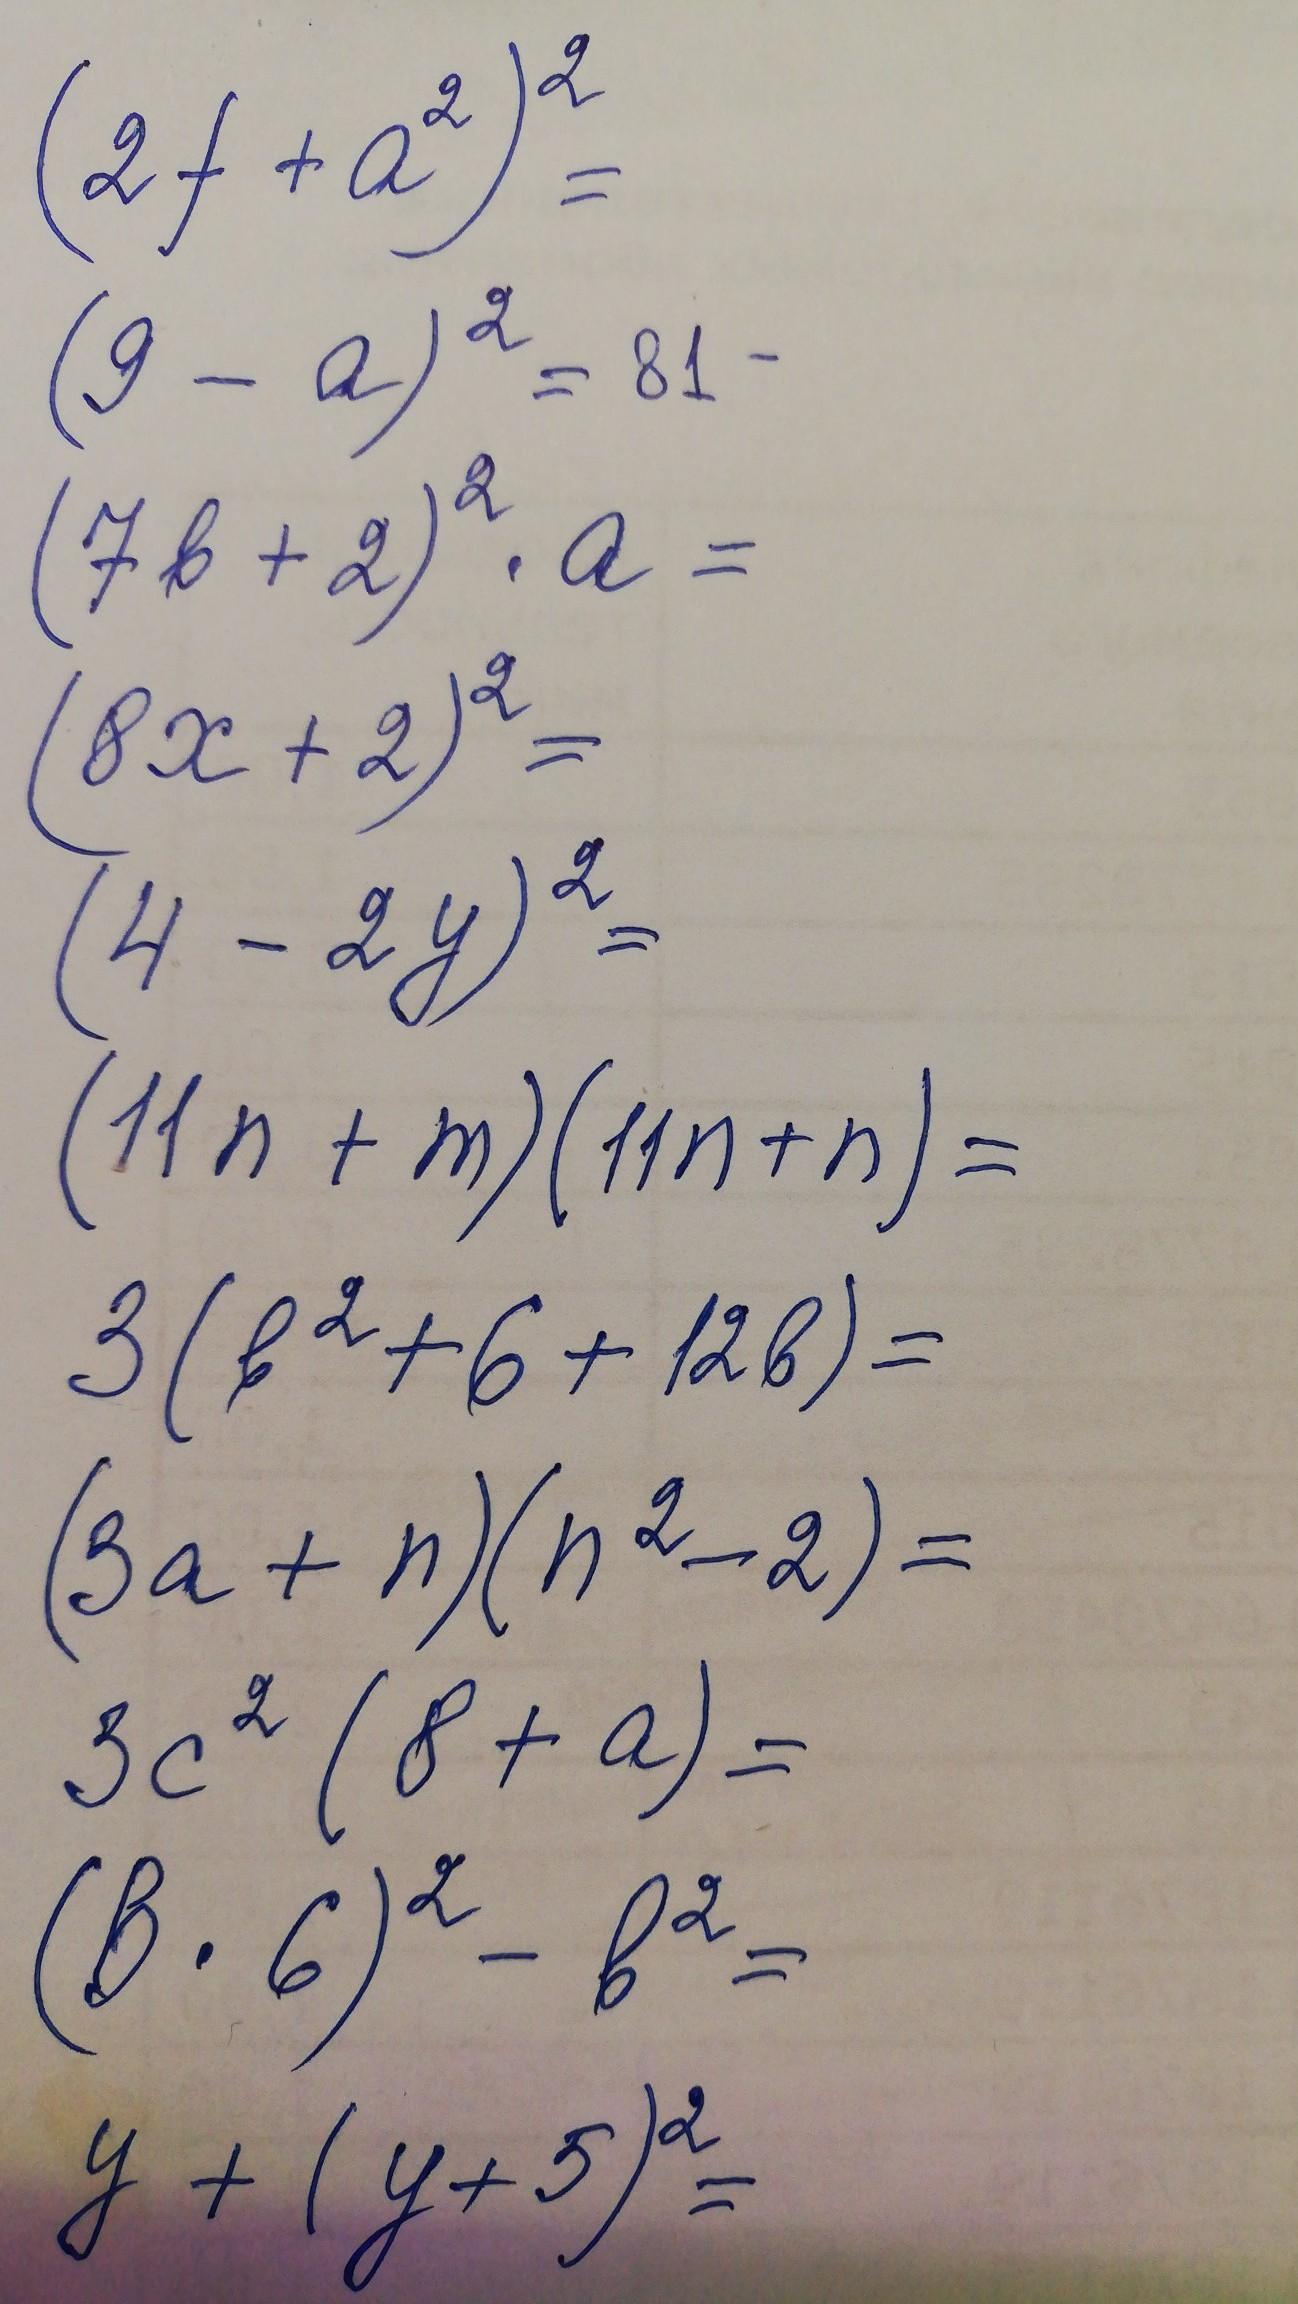 (2f + a²)² =
(9 - a)² = 81 -
(7b + 2)² · a =
(8x + 2)² =
(4 - 2y)² =
(11n + m)(11n + n) =
3(b² + 6 + 12b) =
(3a + n)(n² - 2) =
3c² (8 + a) =
(b · 6)² - b² =
y + (y + 5)² =